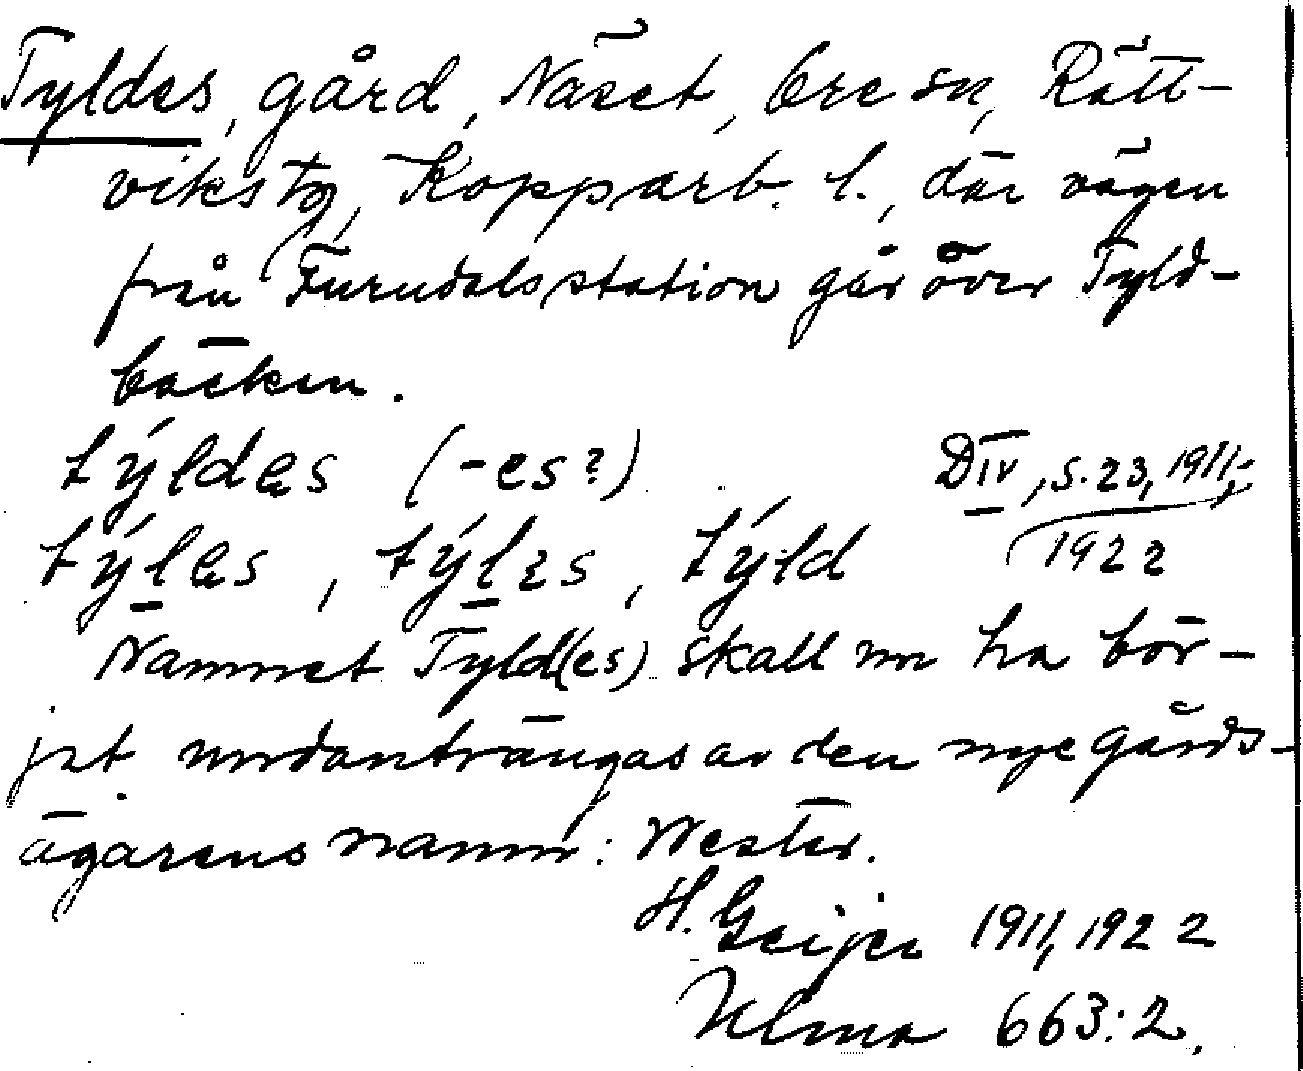 Tyldes, gård, Näset, Ore sn, Rätt-
viks tg, Kopparb. l., där vägen
från Furudals station går över Tyld-
bäcken.
týldes (-es?) DIV, s. 23, 1911,
týles, týlɛs, týld 1922
Namnet Tyld(es) skall nu ha bör-
jat undanträngas av den nye gårds-
ägarens namn: Wester.
H. Geijer 1911, 1922
Ulma 663:2.